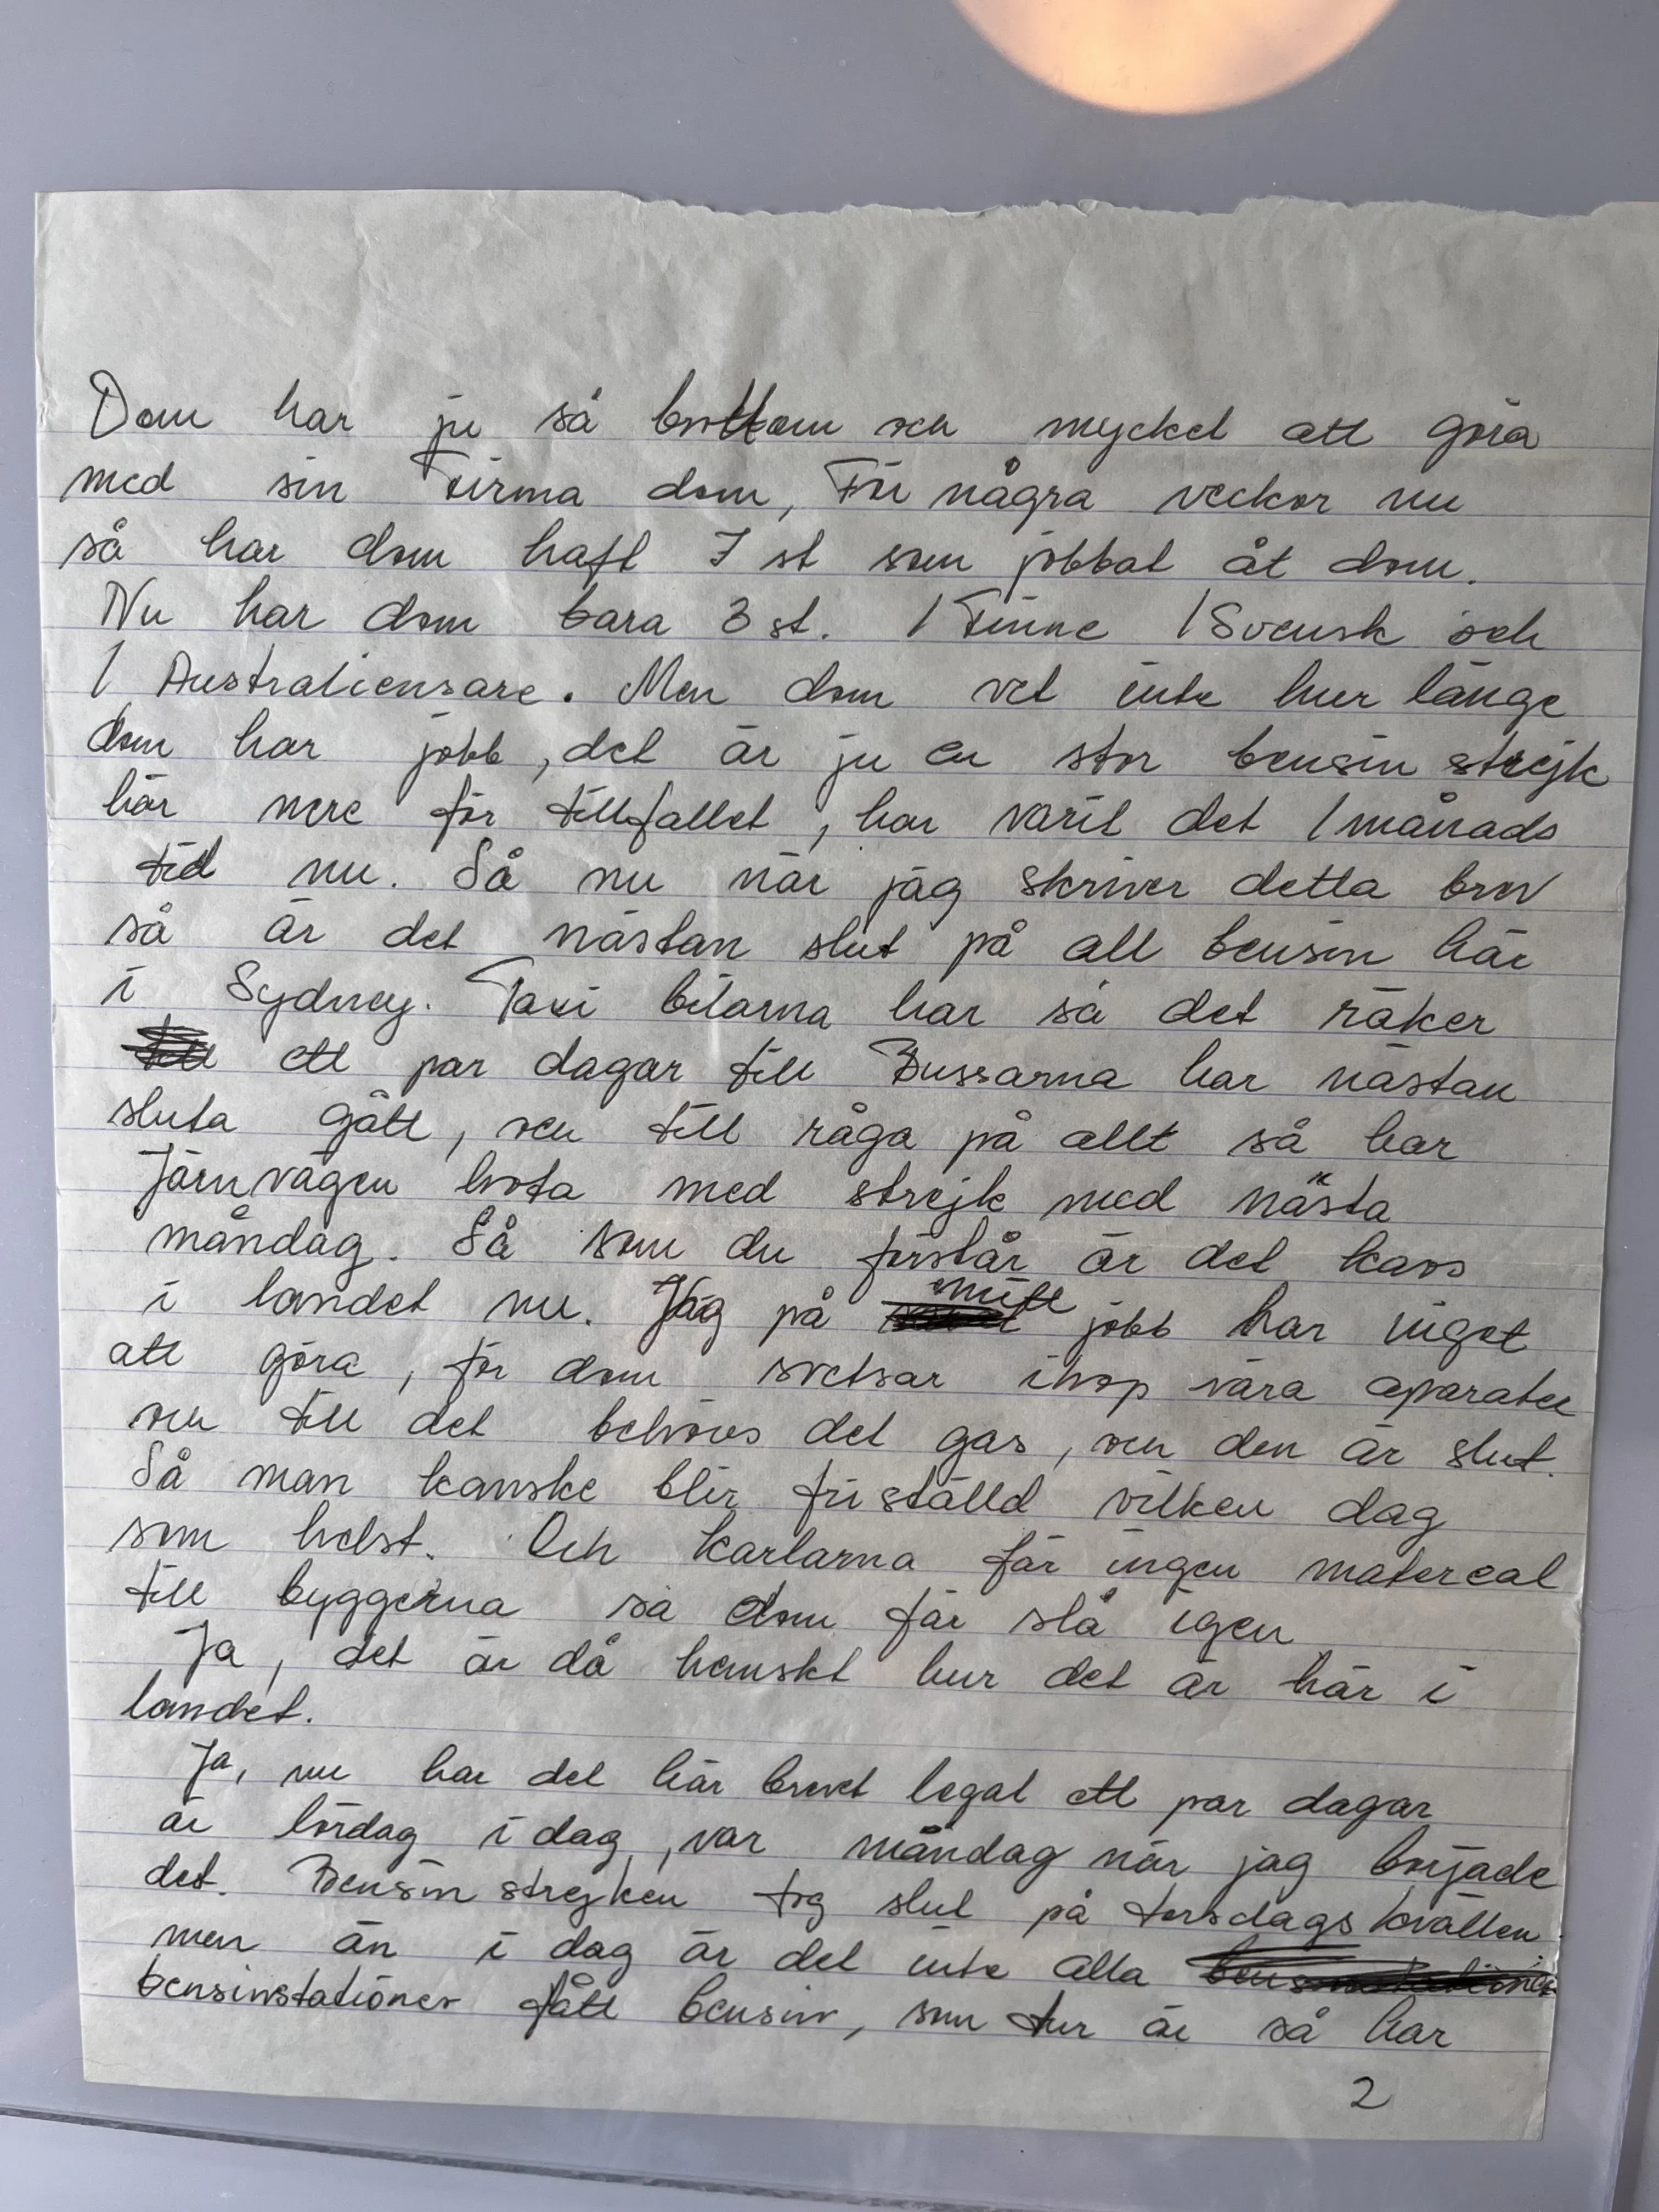 Dom har ju så bråttom och mycket att göra
med sin Firma dom, För några veckor nu
så har dom haft 7 st som jobbat åt dom.
Nu har dom bara 3 st. 1 Finne 1 Svensk och
1 Australiensare. Men dom vet inte hur länge
dom har jobb, det är ju en stor bensin strejk
här nere för tillfallet, har varit det 1 månads
tid nu. Så nu när jag skriver detta brev
så är det nästan slut på all bensin här
i Sydney. Taxi bilarna har så det räker
ett par dagar till Bussarna har nästan
sluta gått, och till råga på allt så har
Järnvägen hota med strejk med nästa
måndag. Så som du förstår är det kaos
i landet nu. Jag på mitt jobb har inget
att göra, för dom svetsar ihop våra aparater
och till det behövs det gas, och den är slut.
Så man kanske blir friställd vilken dag
som helst. Och karlarna får ingen matereal
till byggerna så dom får slå igen
Ja, det är då hemskt hur det är här i
landet.
Ja, nu har det här brevet legat ett par dagar
är lördag i dag, var måndag när jag började
det. Bensin strejken tog slut på torsdags kvällen
men än i dag är det inte alla
bensinstationer fått bensin, som tur är så har
2